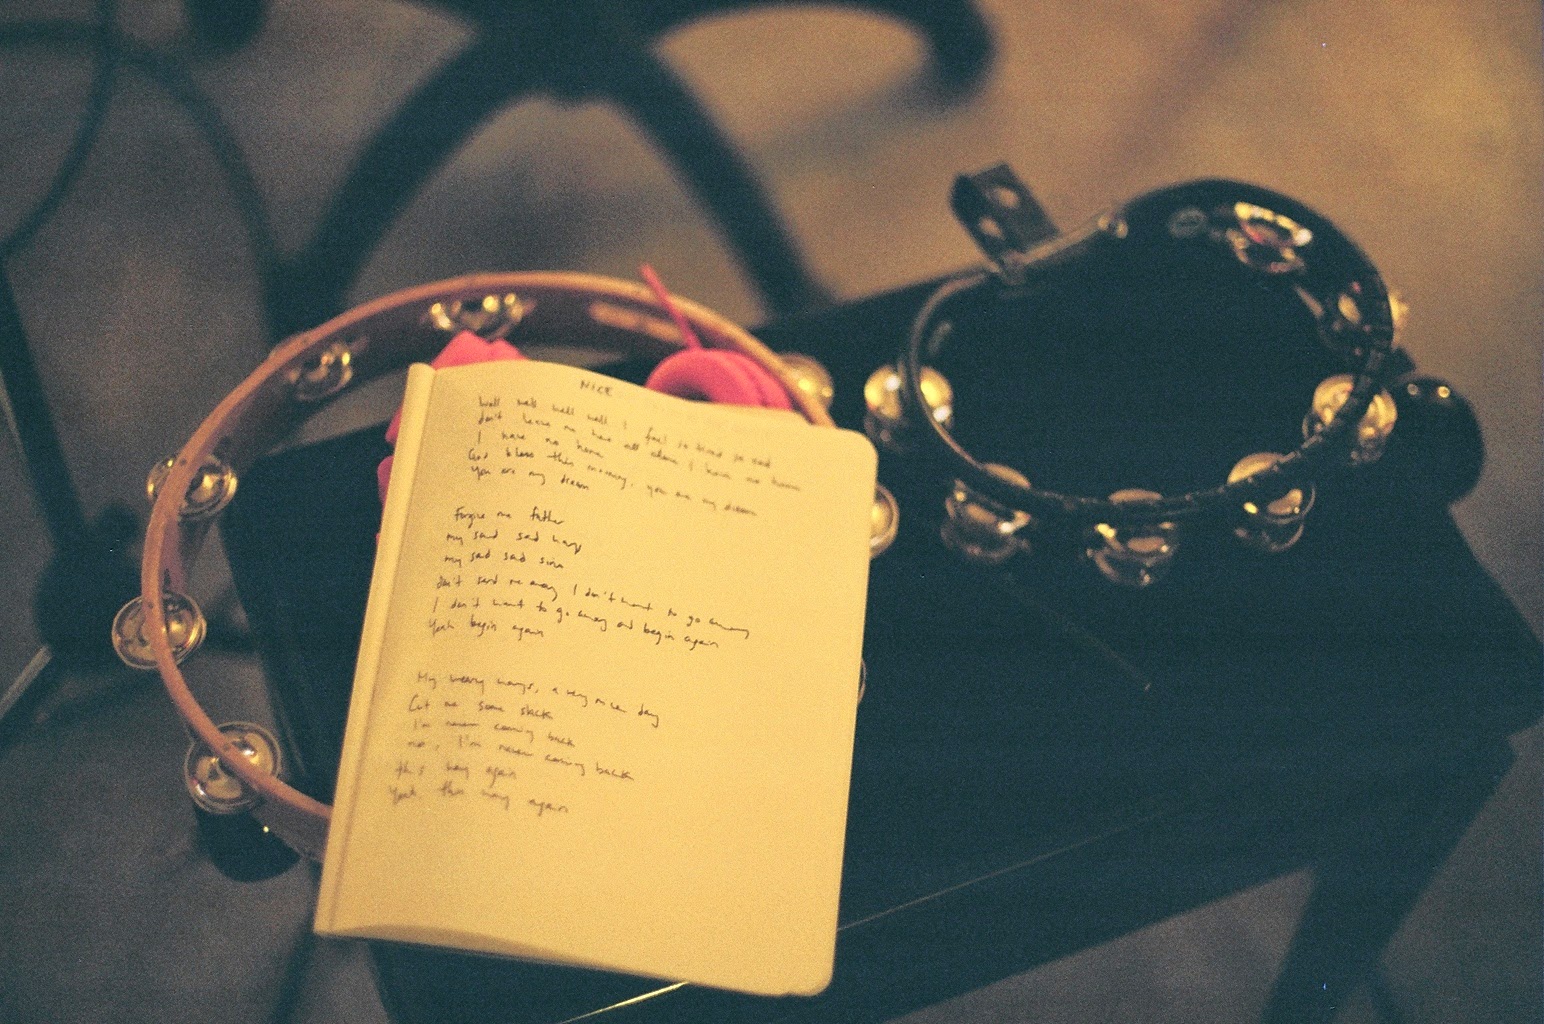 NICE
Well well well well I feel so blind so sad
don't leave me here all alone I have no home
I have no home
God bless this morning, you are my dream
You are my dream
Forgive me father
my sad sad
my sad sad sins
don't send me away I don't want to go away
I don't want to go away and begin again
Yeah begin again
My weary ways, a very nice day
Cut me some slack
I'm never coming back
no, I'm never coming back
this way again
Yeah this way again